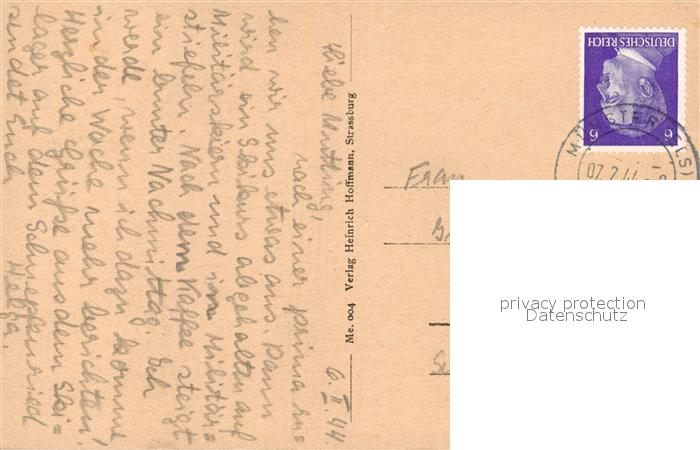 6. II. 44.
Liebe Mutting!
nach einer prima
hen wir uns etwas aus. Dann
wird ein Skikurs abgehalten auf
Militärskiern und in Militär=
stiefeln. Nach dem Kaffee steigt
ein bunter Nachmittag. Ich
werde, wenn ich dazu komme,
in der Woche mehr berichten!
Herzliche Grüße aus dem Ski=
lager auf dem Schnepfenried
sendet Euch
Helga.
Me. 004 Verlag Heinrich Hoffmann, Strassburg
DEUTSCHES REICH
6 6
MÜNSTER (ELS)
07.2.44
Frau
privacy protection
Datenschutz